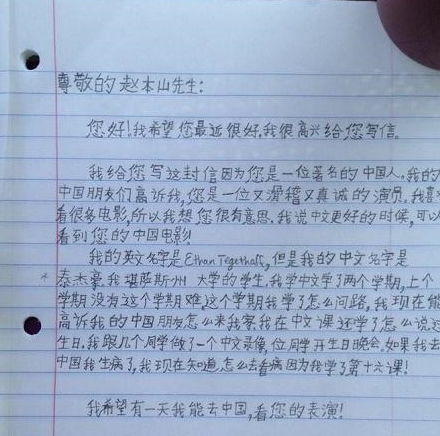 尊敬的赵本山先生:
您好!我希望您最近很好.我很高兴给您写信.
我给您写这封信因为您是一位著名的中国人.我的
中国朋友们高诉我,您是一位又滑稽又真诚的演员.我喜
看很多电影,所以我想您很有意思.我说中文更好的时候,可以
看到您的中国电影!
我的英文名字是Ethan Tegethoff,但是我的中文名字是
泰杰豪.我堪萨斯州大学的学生.我学中文学了两个学期,上个
学期没有这个学期难.这个学期我学了怎么问路,我现在能
高诉我的中国朋友怎么来我家.我在中文课还学了怎么说过
生日.我跟几个同学做了一个中文录像,位同学开生日晚会.如果我去
中国我生病了,我现在知道怎么去看病因为我学了第十六课!
我希望有一天我能去中国,看您的表演!